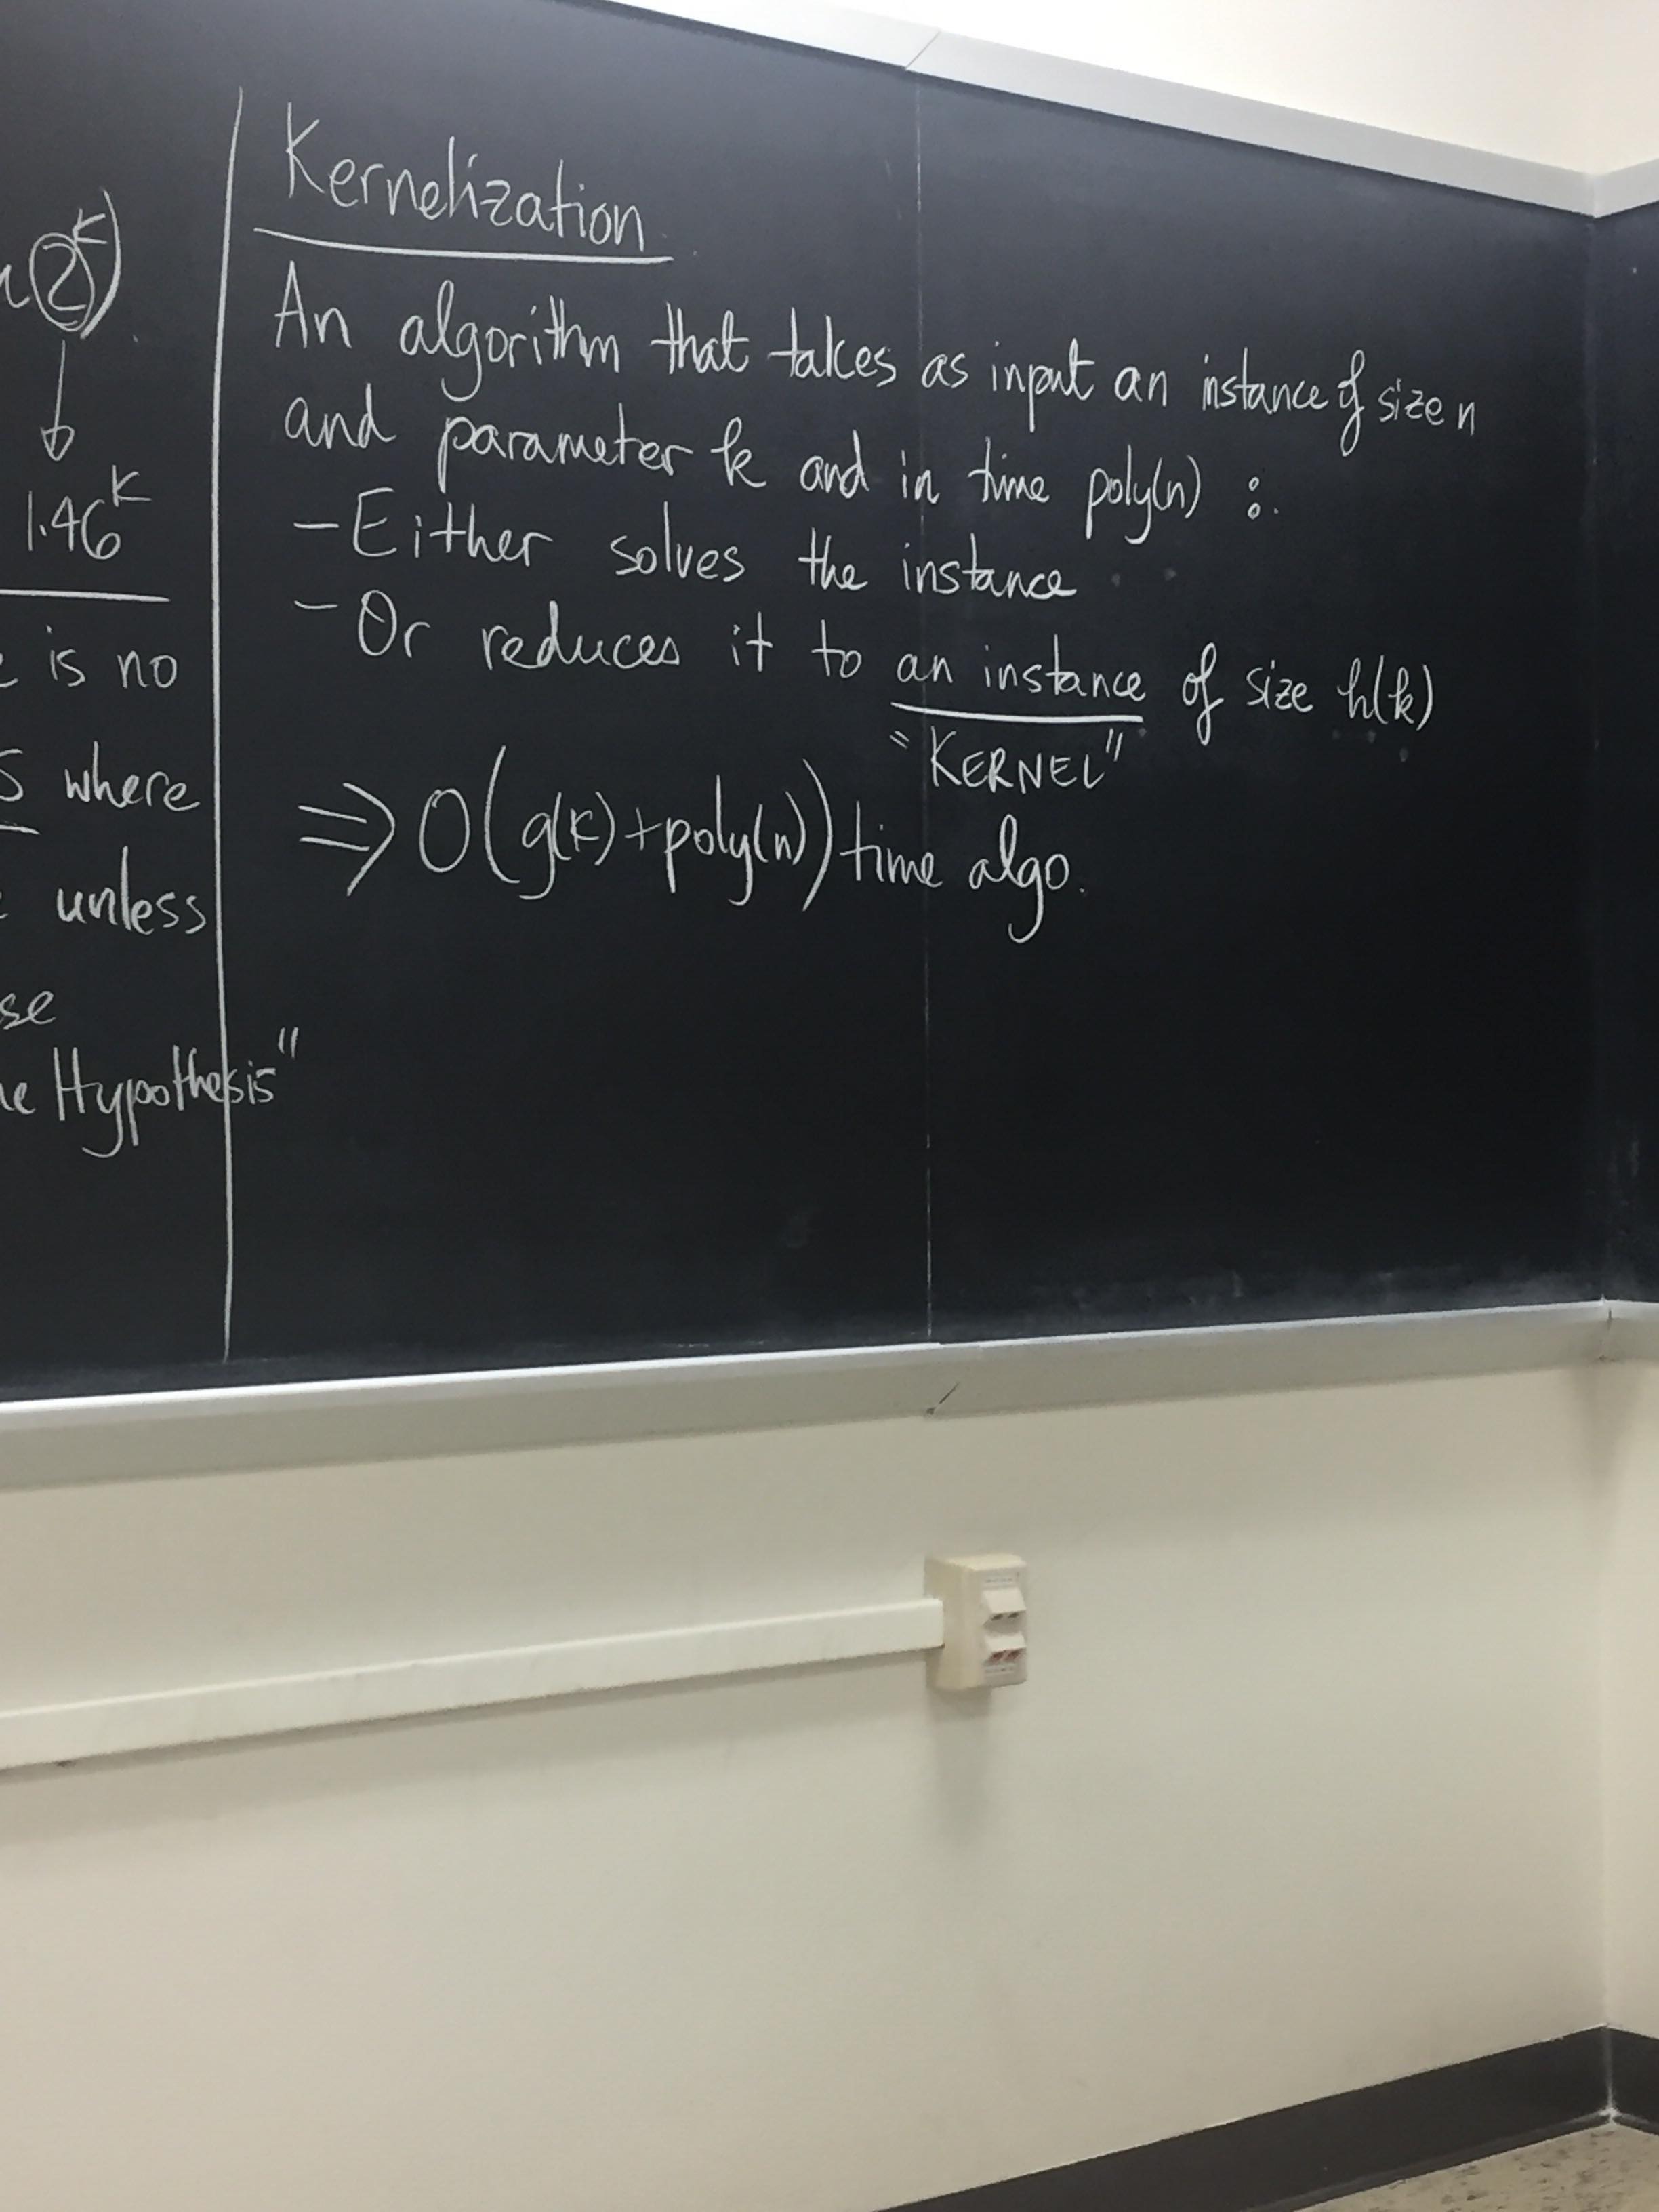 2^K)
1.46^K
is no
where
unless
se
Hypothesis"
Kernelization
An algorithm that takes as input an instance of size n
and parameter k and in time poly(n) :
- Either solves the instance
- Or reduces it to an instance of size h(k)
"KERNEL"
⇒ O(g(k)+poly(n)) time algo.